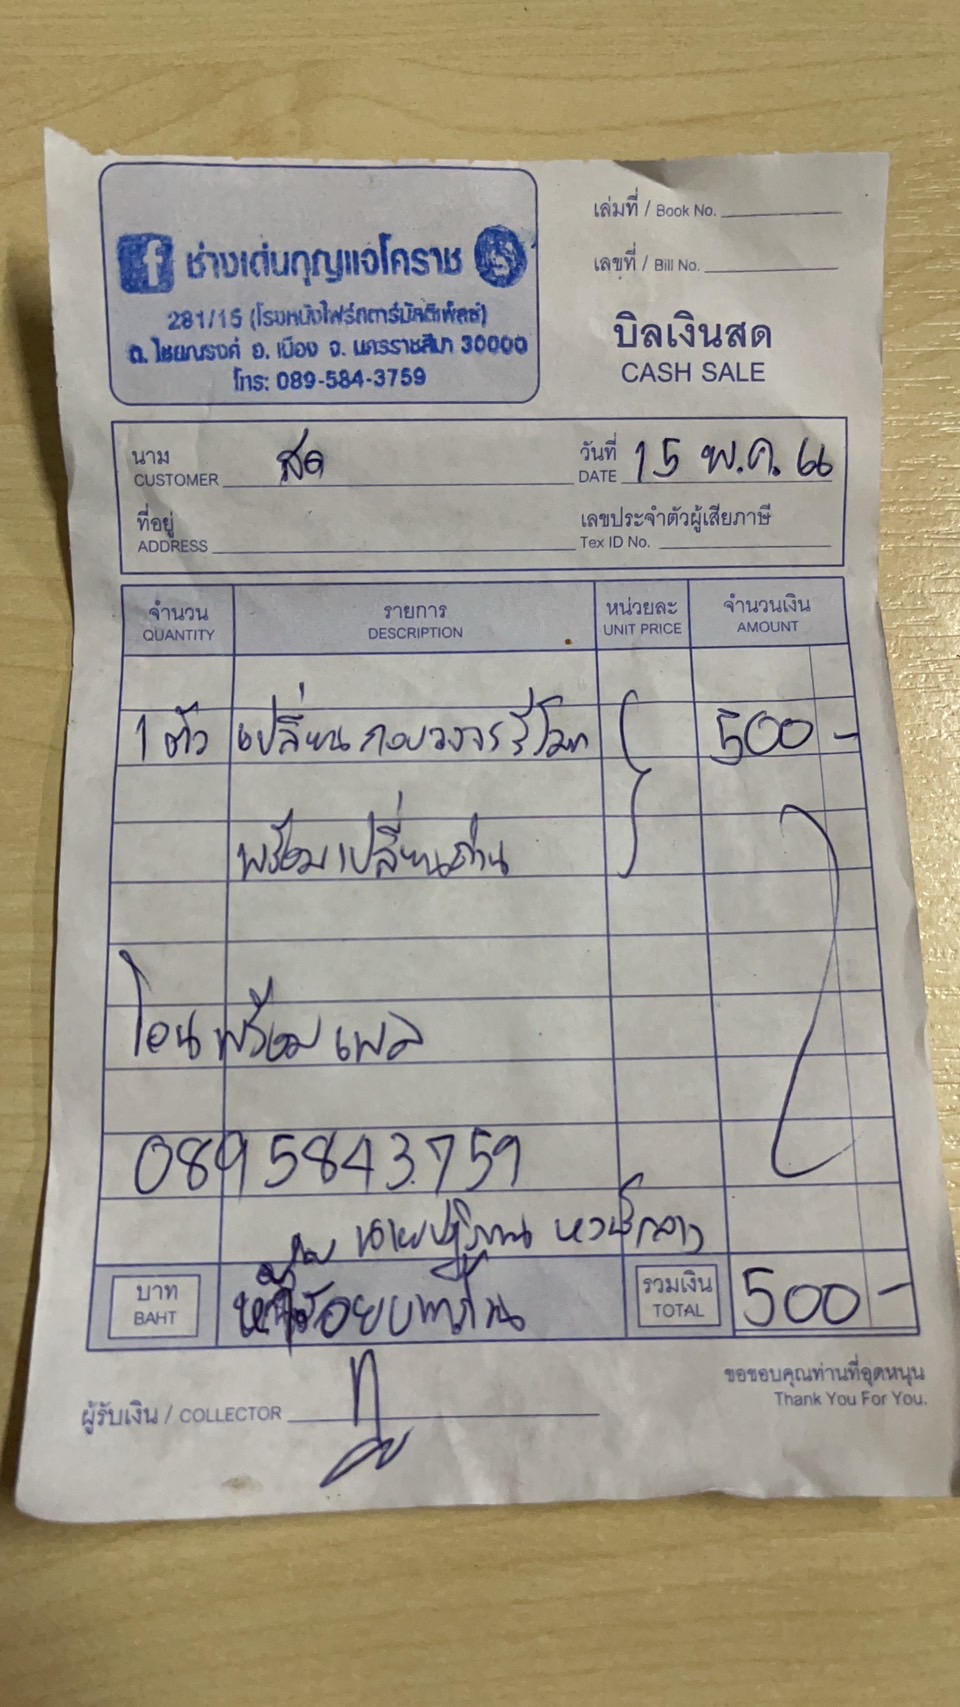 ช่างเด่นกุญแจโคราช
281/15 (โรงหนังไฟร์สตาร์มัลติเพล็ซ)
ถ. ไชยณรงค์ อ. เมือง จ. นครราชสีมา 30000
โทร: 089-584-3759
เล่มที่ / Book No.
เลขที่ / Bill No.
บิลเงินสด
CASH SALE
นาม สด วันที่ 15 พ.ค. 66
CUSTOMER DATE
ที่อยู่ เลขประจำตัวผู้เสียภาษี
ADDRESS Tex ID No.
จำนวน รายการ หน่วยละ จำนวนเงิน
QUANTITY DESCRIPTION UNIT PRICE AMOUNT
1 ตัว เปลี่ยนกอบวงจรรีโมท 500 -
พร้อมเปลี่ยนถ่าน
โอนพร้อมเพล
0895843759
นาย
บาท ห้าร้อยบาทถ้วน รวมเงิน 500 -
BAHT TOTAL
ขอขอบคุณท่านที่อุดหนุน
Thank You For You.
ผู้รับเงิน / COLLECTOR